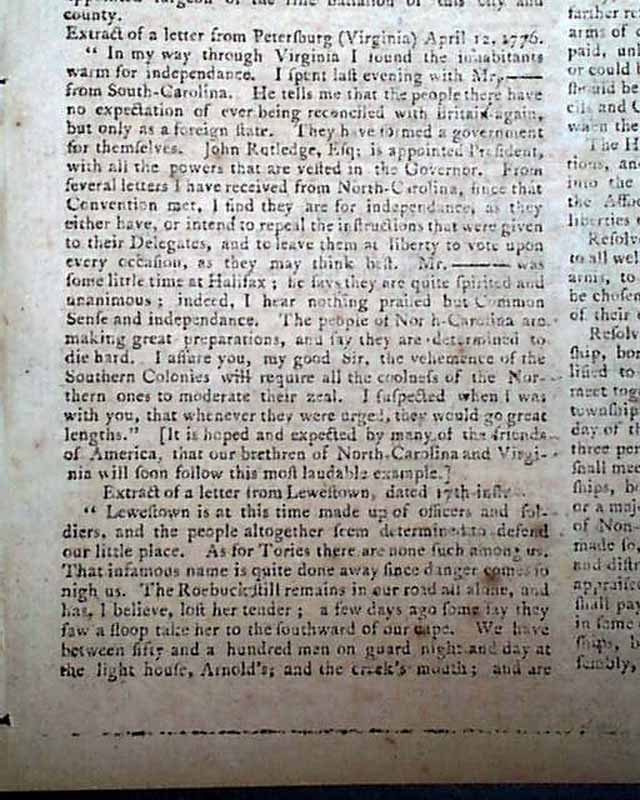 appointed surgeon of the battalion of this city and
county.
Extract of a letter from Petersburg (Virginia) April 12, 1776.
“ In my way through Virginia I found the inhabitants
warm for independance. I ſpent laſt evening with Mr.——
from South-Carolina. He tells me that the people there have
no expectation of ever being reconciled with Britain again,
but only as a foreign ſtate. They have formed a government
for themſelves. John Rutledge, Eſq; is appointed Preſident,
with all the powers that are veſted in the Governor. From
ſeveral letters I have received from North-Carolina, ſince that
Convention met, I find they are for independance, as they
either have, or intend to repeal the inſtructions that were given
to their Delegates, and to leave them at liberty to vote upon
every occaſion, as they may think beſt. Mr. ——— was
ſome little time at Halifax ; he ſays they are quite ſpirited and
unanimous ; indeed, I hear nothing praiſed but Common
Senſe and independance. The people of Nor h-Carolina are
making great preparations, and ſay they are determined to
die hard. I aſſure you, my good Sir, the vehemence of the
Southern Colonies will require all the coolneſs of the Nor-
thern ones to moderate their zeal. I ſuſpected when I was
with you, that whenever they were urged, they would go great
lengths.” [It is hoped and expected by many of the friends
of America, that our brethren of North-Carolina and Virgi-
nia will ſoon follow this moſt laudable example.]
Extract of a letter from Lewestown, dated 17th inſt.
“ Lewestown is at this time made up of officers and ſol-
diers, and the people altogether ſeem determined to defend
our little place. As for Tories there are none ſuch among us.
That infamous name is quite done away ſince danger comes ſo
nigh us. The Roebuck ſtill remains in our road all alone, and
has, I believe, loſt her tender ; a few days ago ſome ſay they
ſaw a ſloop take her to the ſouthward of our cape. We have
between fifty and a hundred men on guard night and day at
the light houſe, Arnold's; and the creek's mouth ; and are
farther
arms of
paid,
or could b
ſhould be
cils and C
when the
The H
tions, and
into the
the
liberties
Reſolve
to all wel
arms, to
be choſen
of their
Reſolv
ſhip, bor
liſted to
meet toge
townſhip
day of th
three per
ſhall meet
ſhips, b
or a maj
of Non-
made ſo,
and diſtr
appraiſe
ſhall pay
in ſome
ſhips, b
ſembly,